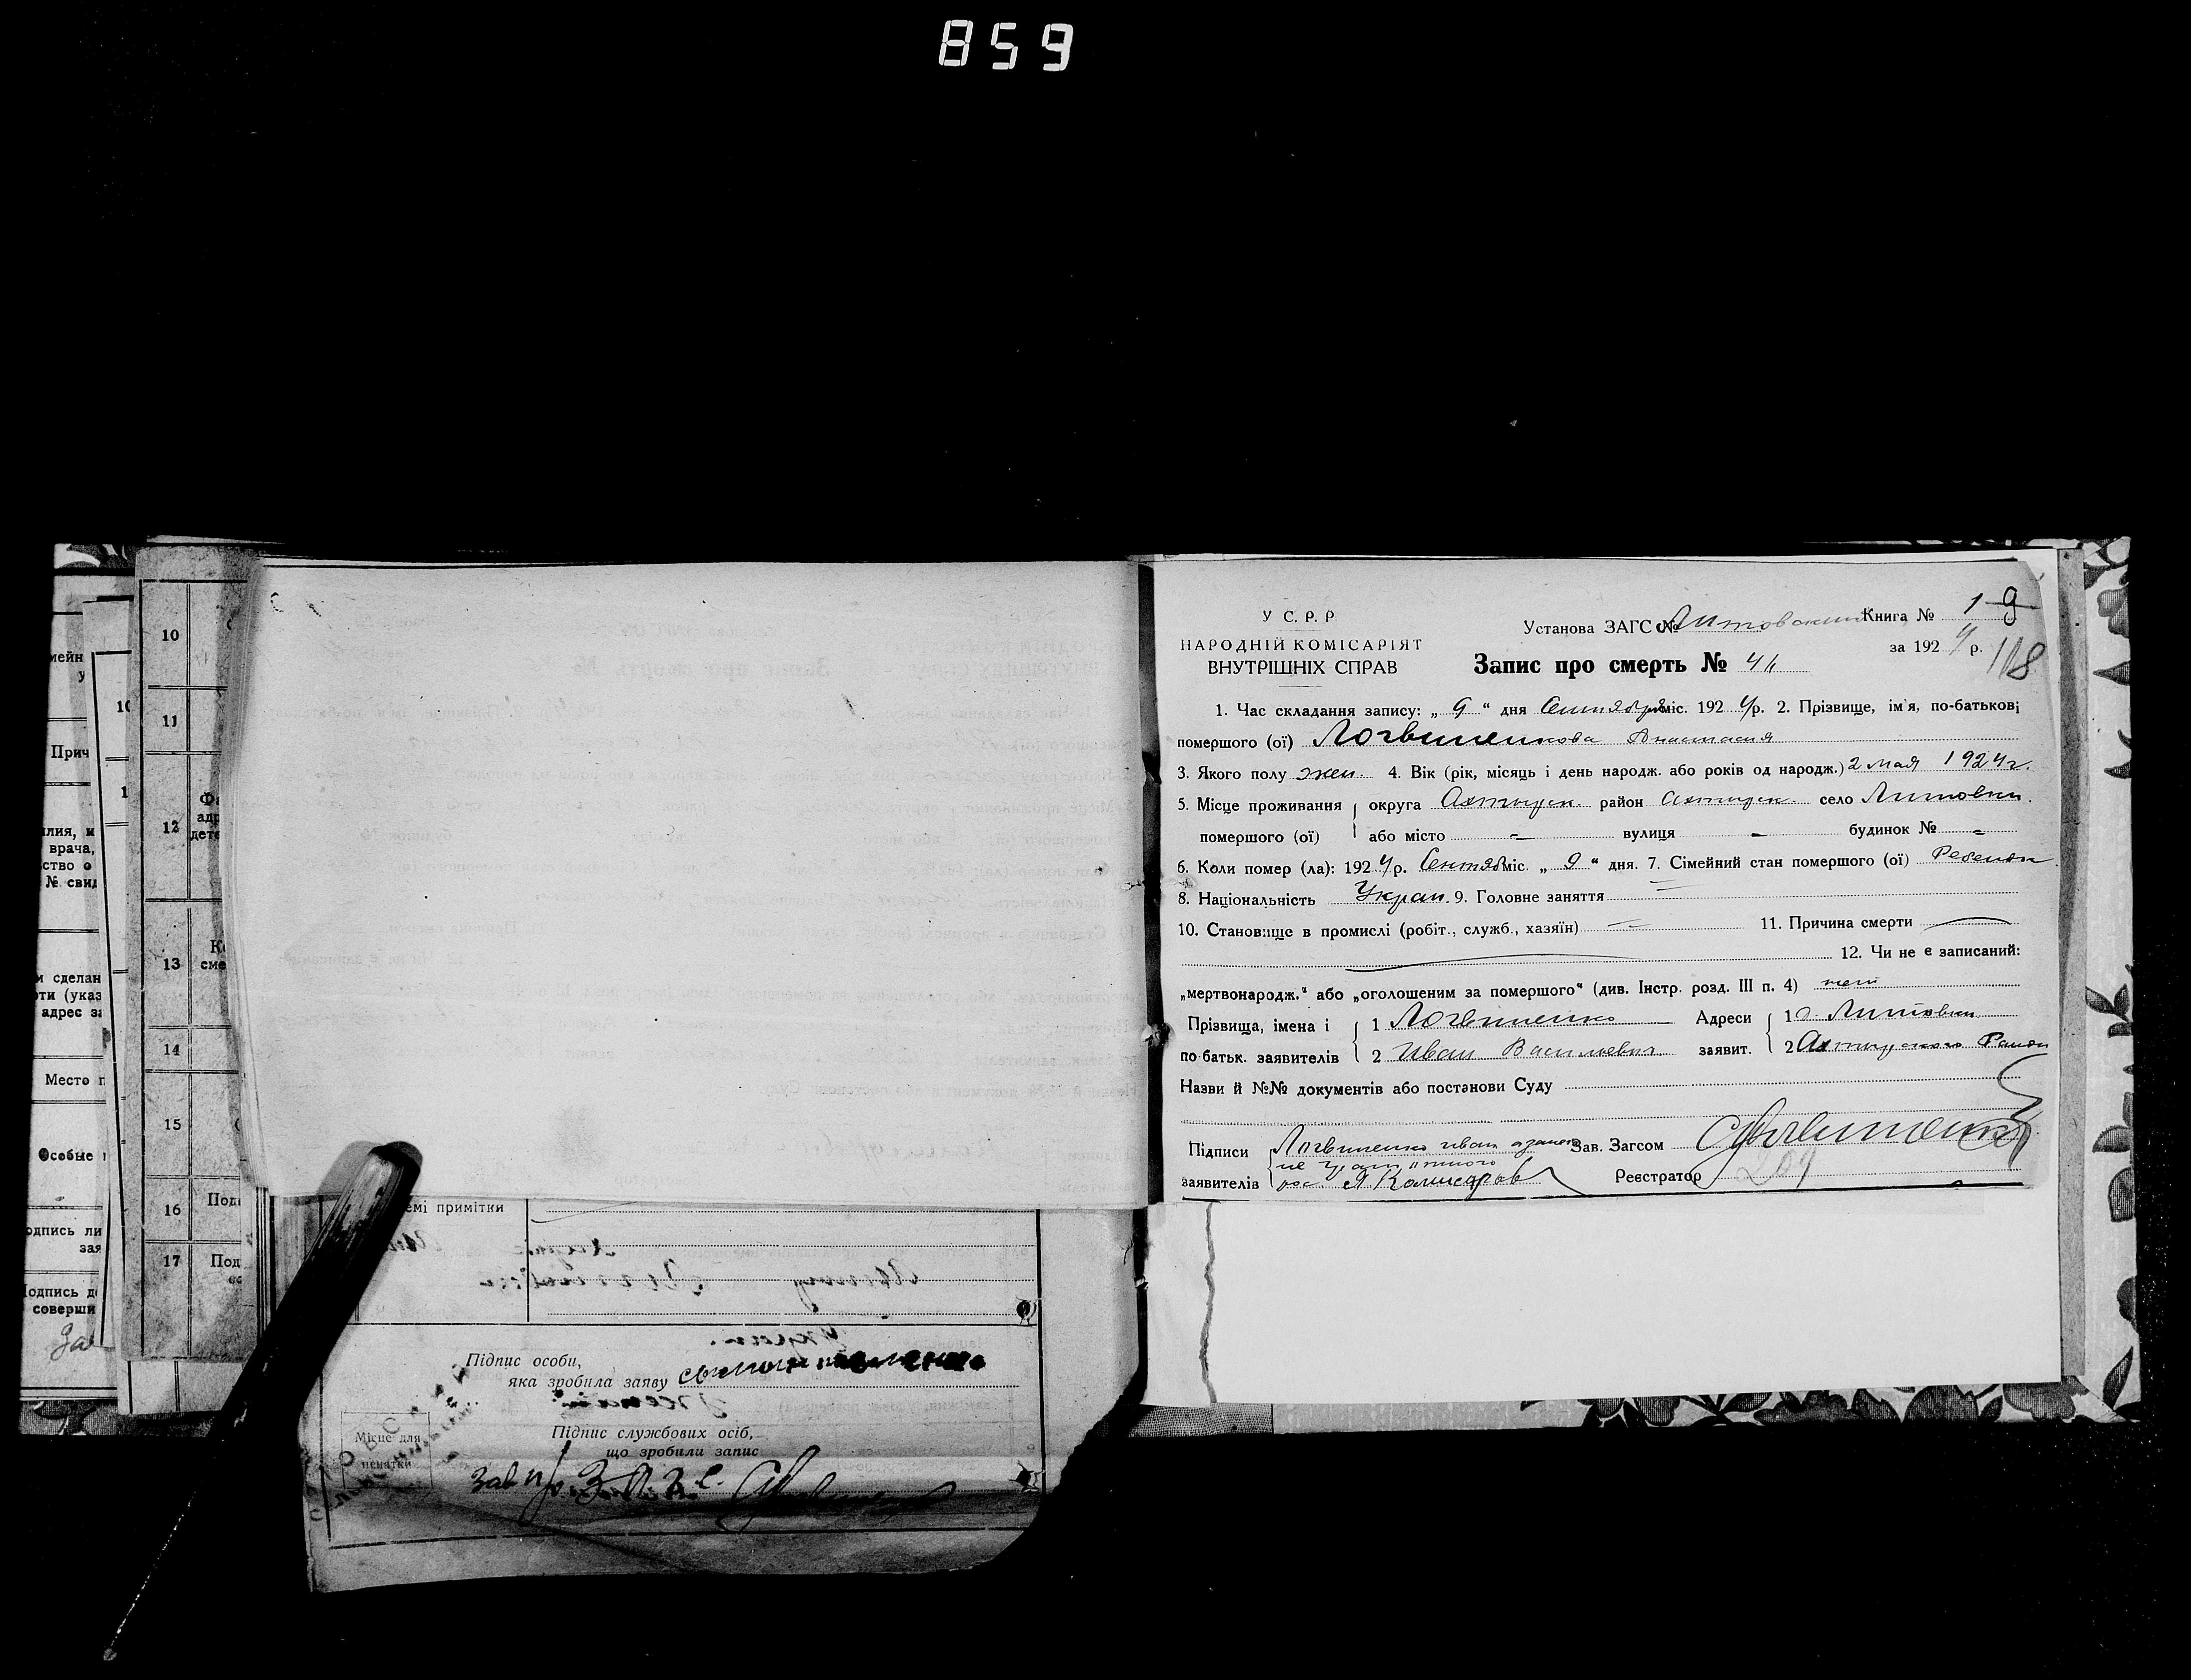 859
У С. Р. Р.
НАРОДНІЙ КОМІСАРІЯТ
ВНУТРІШНІХ СПРАВ
Установа ЗАГС № Литовский Книга № 1 9
за 1924 р. 118
Запис про смерть №
1. Час складання запису: „ 9 “ дня Сентября міс. 1924 р. 2. Прізвище, ім'я, по-батькові
помершого (ої) Логвиненкова Анастасия
3. Якого полу жен. 4. Вік (рік, місяць і день народж. або років од народж.) 2 мая 1924 г.
5. Місце проживання округа Ахтырск. район Ахтырск. село Литовки.
помершого (ої) або місто – вулиця – будинок № –
6. Коли помер (ла): 1924 р. Сентяб міс. „ 9 “ дня. 7. Сімейний стан помершого (ої) Ребенок
8. Національність Украи. 9. Головне заняття –
10. Становище в промислі (робіт., служб., хазяїн) – 11. Причина смерти —
12. Чи не є записаний:
„мертвонародж.“ або „оголошеним за помершого“ (див. Інстр. розд. III п. 4) нет
Прізвища, імена і 1 Логвиненко Адреси 1 с. Литовки
по-батьк. заявителів 2 Иван Васильевич заявит. 2 Ахтырского Район
Назви й №№ документів або постанови Суду
Підписи Логвиненко иван а за него Зав. Загсом
не грамотного
заявителів рос. Я Комисаров Реєстратор
209
10
11
12
13
14
15
16
17
мейн
у
Прич
врача,
ство о
№ свид
м сделан
ти (указ
адрес за
Место п
Особые
одпись ли
зая
одпись д
соверши
Фа
адр
дете
Ко
сме
Под
Под
емі примітки
Підпис особи,
яка зробила заяву
Підпис службових осіб,
що зробили запис
Місце для
печатки